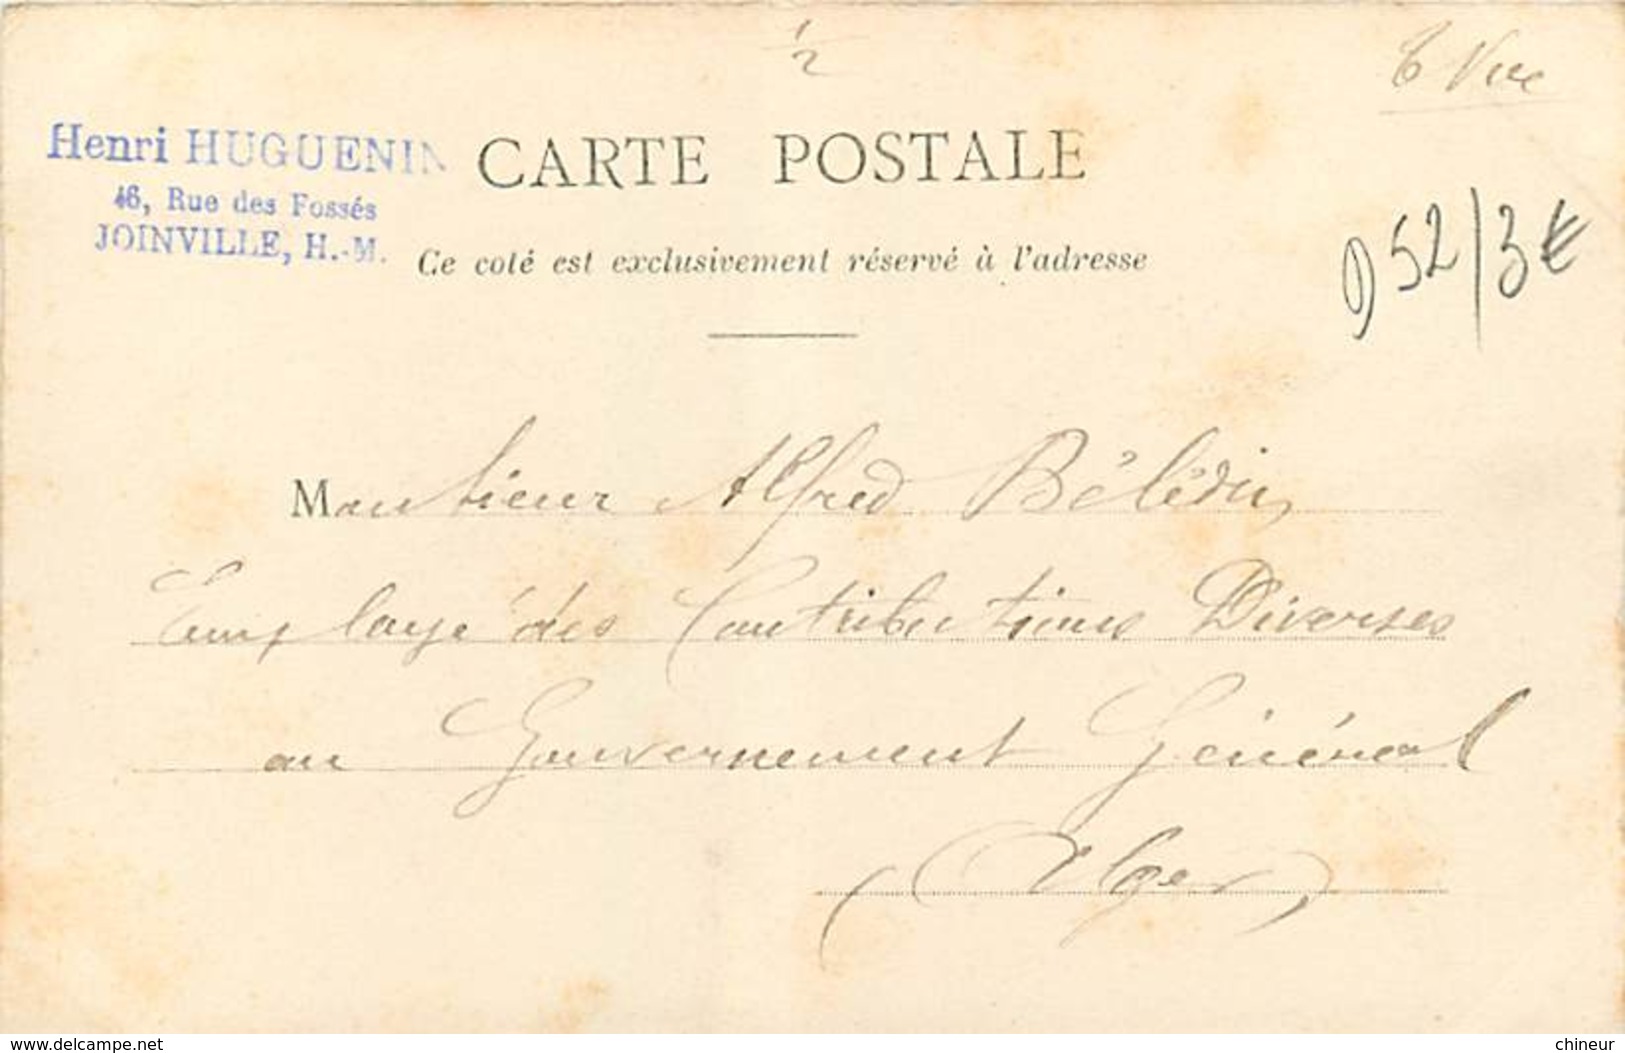 1/2
Vue
Henri HUGUENIN
CARTE POSTALE
46, Rue des Fossés
JOINVILLE, H.-M.
Ce coté est exclusivement réservé à l'adresse
52/3€
Monsieur Alfred Bélédin
Employé des Contributions Diverses
au Gouvernement Général
(Alger)
www.delcampe.net
chineur